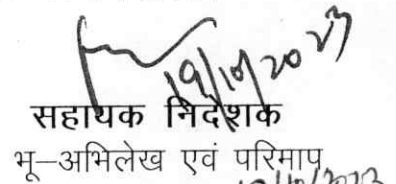 19/10/2023
सहायक निदेशक
भू–अभिलेख एवं परिमाप